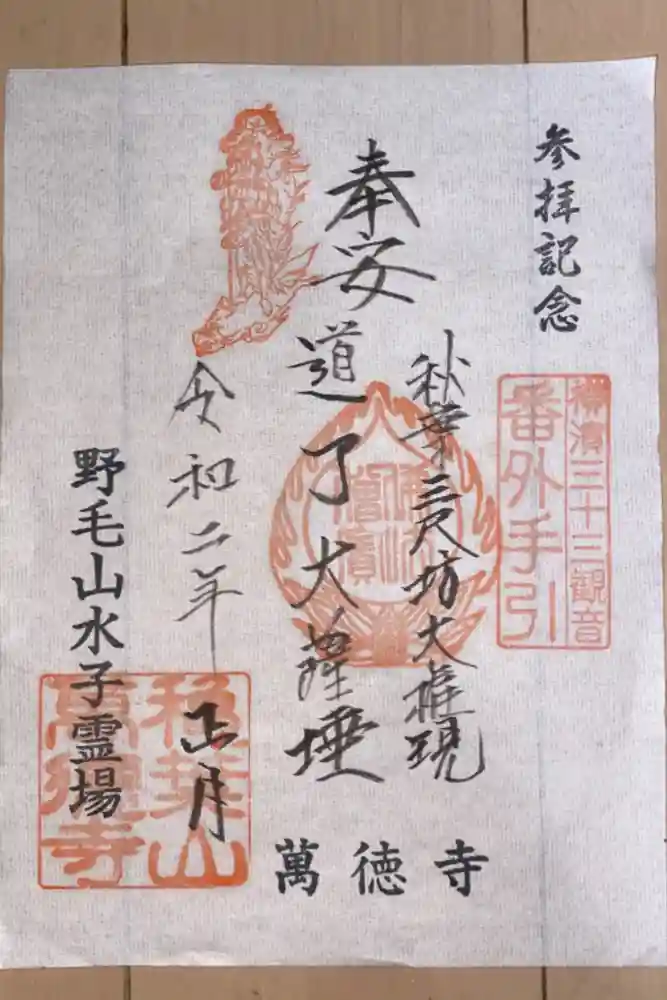 参拝記念
横濱三十三観音
番外手引
秋葉三尺坊大権現
奉安
道了大薩埵
令和二年
正月
野毛山水子霊場
萬徳寺
萬德寺